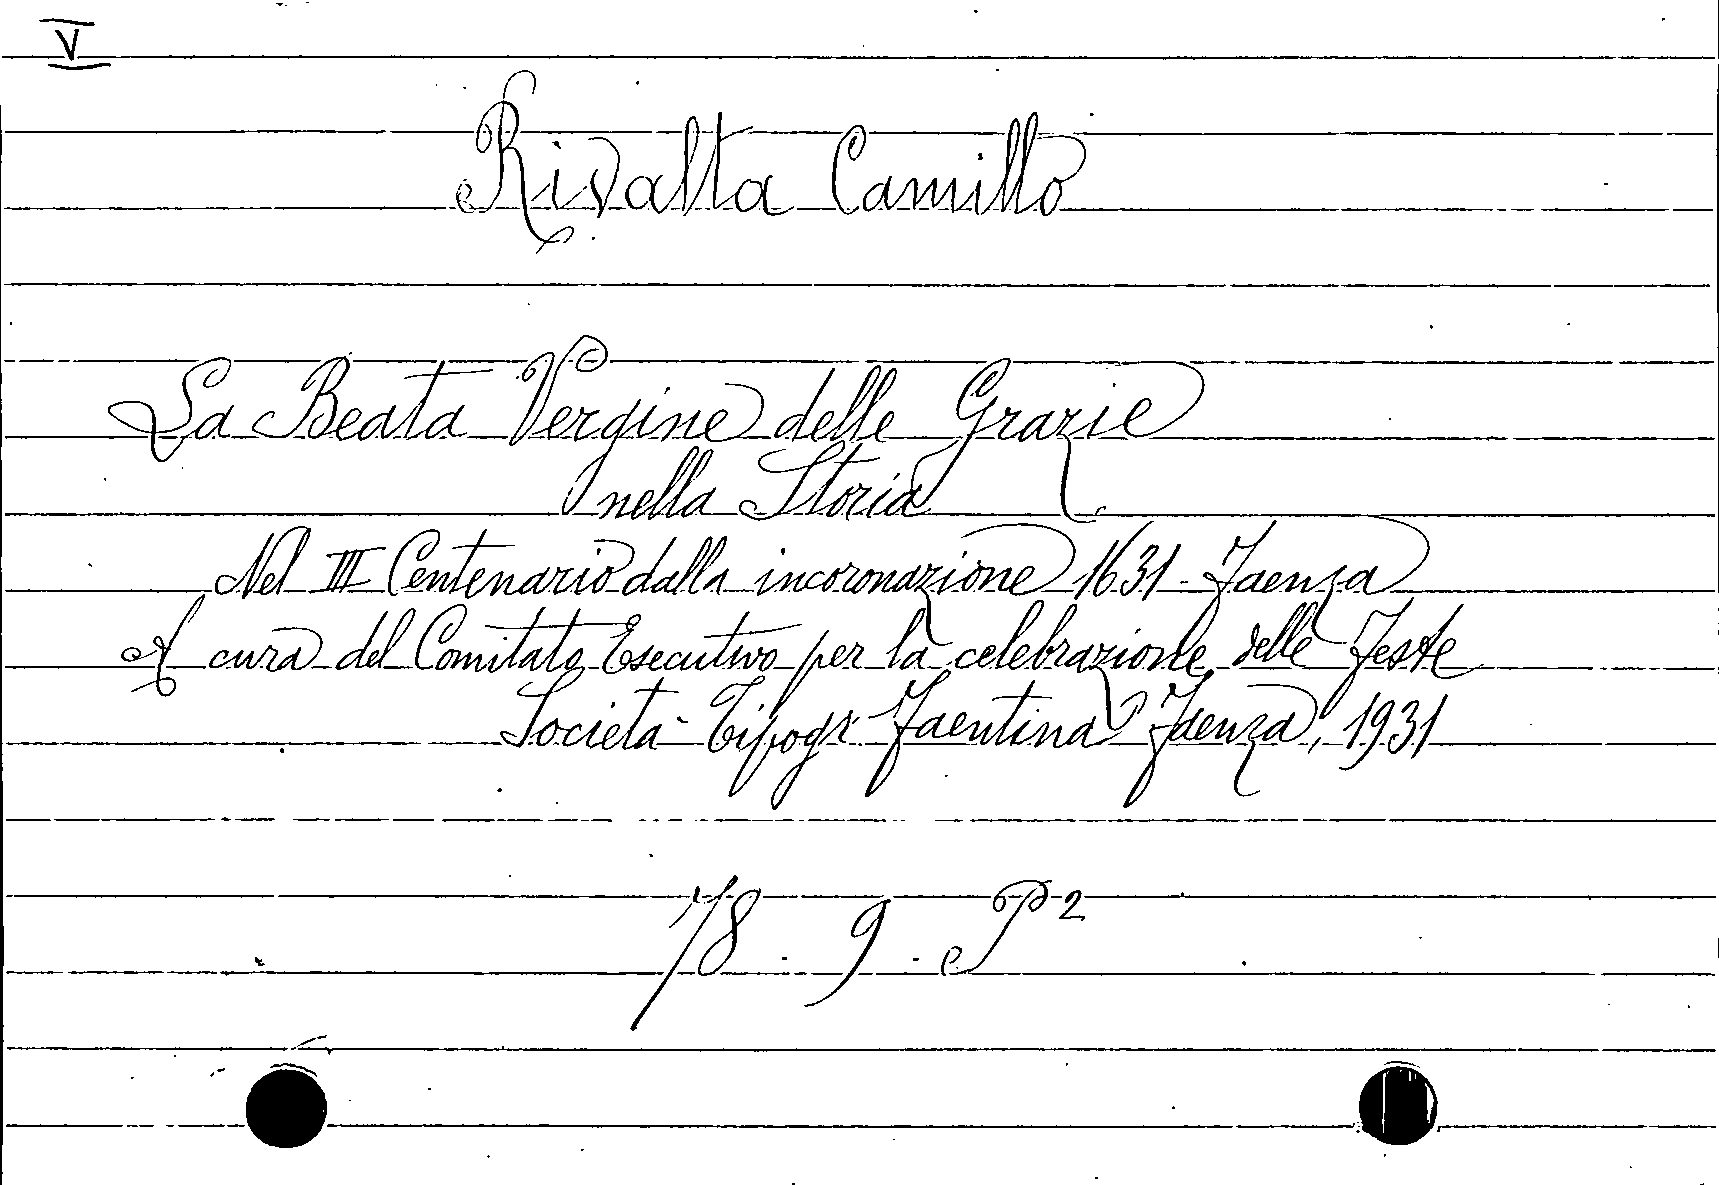 V
Rivalta Camillo
La Beata Vergine delle Grazie
nella Storia
Nel III Centenario dalla incoronazione 1631 - Faenza
A cura del Comitato Esecutivo per la celebrazione delle Feste
Società Tipogr. Faentina Faenza, 1931
78 . 9 . P²